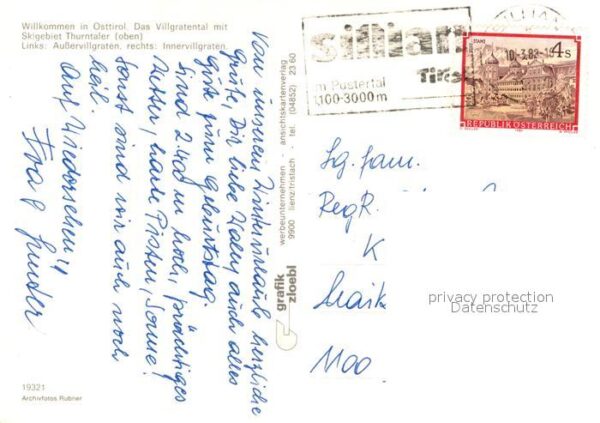 Willkommen in Osttirol. Das Villgratental mit
Skigebiet Thurntaler (oben)
Links: Außervillgraten, rechts: Innervillgraten.
Von unserem Winterurlaub herzliche
Grüße, Dir liebe auch alles
gute zum Geburtstag.
Sind 2.400 m hoch, prächtiges
Wetter, harte Pisten, Sonne!
Sonst sind wir auch noch
heil.
Auf Wiedersehen!
Eva
19321
Archivfotos Rubner
werbeunternehmen · ansichtskartenverlag
9900 lienz/tristach tel. (04852) 23 60
grafik
zloebl
sillian
im Pustertal
Tirol
1100-3000m
10.-3.88
STAMS
4 S
REPUBLIK ÖSTERREICH
Sg. Fam.
Reg R.
K
Maik
privacy protection
Datenschutz